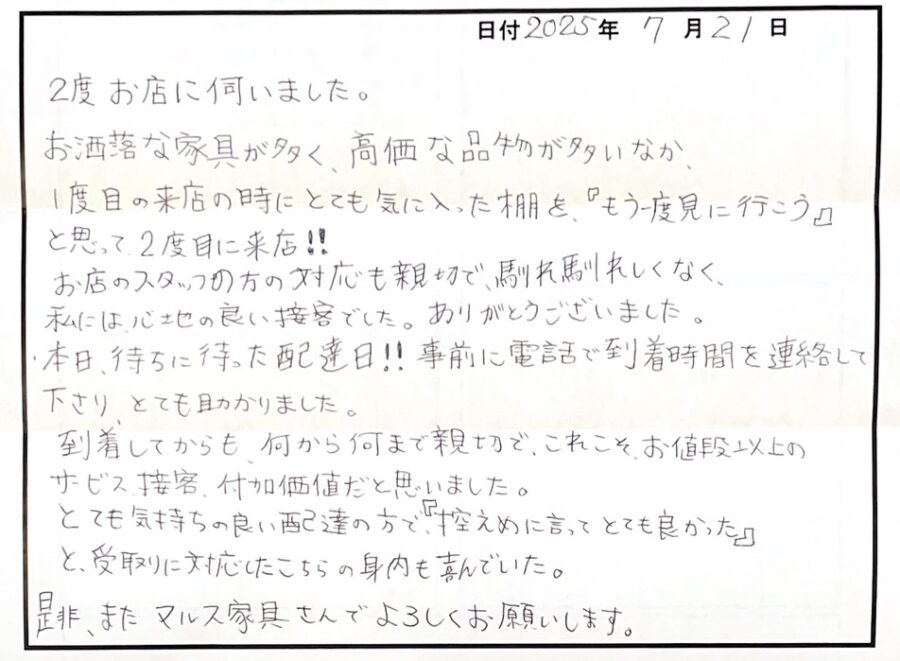 日付 2025年 7月21日
2度 お店に伺いました。
お洒落な家具が多く、高価な品物が多いなか、
1度目の来店の時にとても気に入った棚を、『もう一度見に行こう』
と思って、2度目に来店!!
お店のスタッフの方の対応も親切で、馴れ馴れしくなく、
私には、心地の良い接客でした。ありがとうございました。
・本日、待ちに待った配達日!! 事前に電話で到着時間を連絡して
下さり、とても助かりました。
到着してからも、何から何まで親切で、これこそ、お値段以上の
サービス、接客、付加価値だと思いました。
とても気持ちの良い配達の方で、『控えめに言ってとても良かった』
と、受取りに対応したこちらの身内も喜んでいた。
是非、また マルス家具さんでよろしくお願いします。